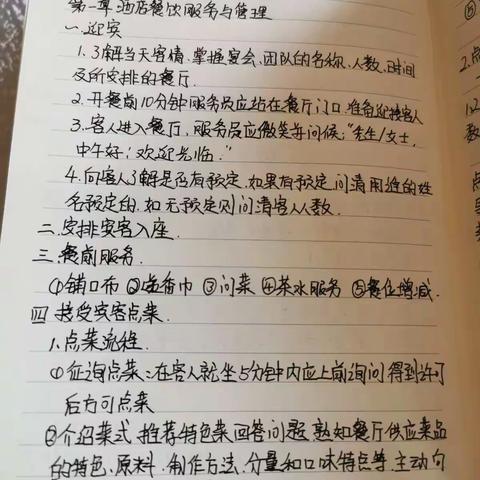 第一章.酒店餐饮服务与管理
一.迎宾
1.了解当天客情,掌握宴会、团队的名称、人数、时间
及所安排的餐厅.
2.开餐前10分钟服务员应站在餐厅门口,准备迎接客人
3.客人进入餐厅,服务员应微笑并问候:"先生/女士,
中午好!欢迎光临."
4.向客人了解是否有预定,如果有预定,问清用谁的姓
名预定的,如无预定则问清客人人数.
二.安排宾客入座.
三.餐前服务.
①铺口布②送香巾③问菜④茶水服务⑤餐位增减.
四.接受宾客点菜.
1.点菜流程.
①征询点菜:在客人就坐5分钟内应上前询问得到许可
后方可点菜
②介绍菜式,推荐特色菜回答问题,熟知餐厅供应菜品
的特色、原料、制作方法、分量和口味特点等,主动向
⑤
2.点
1.2
数
点